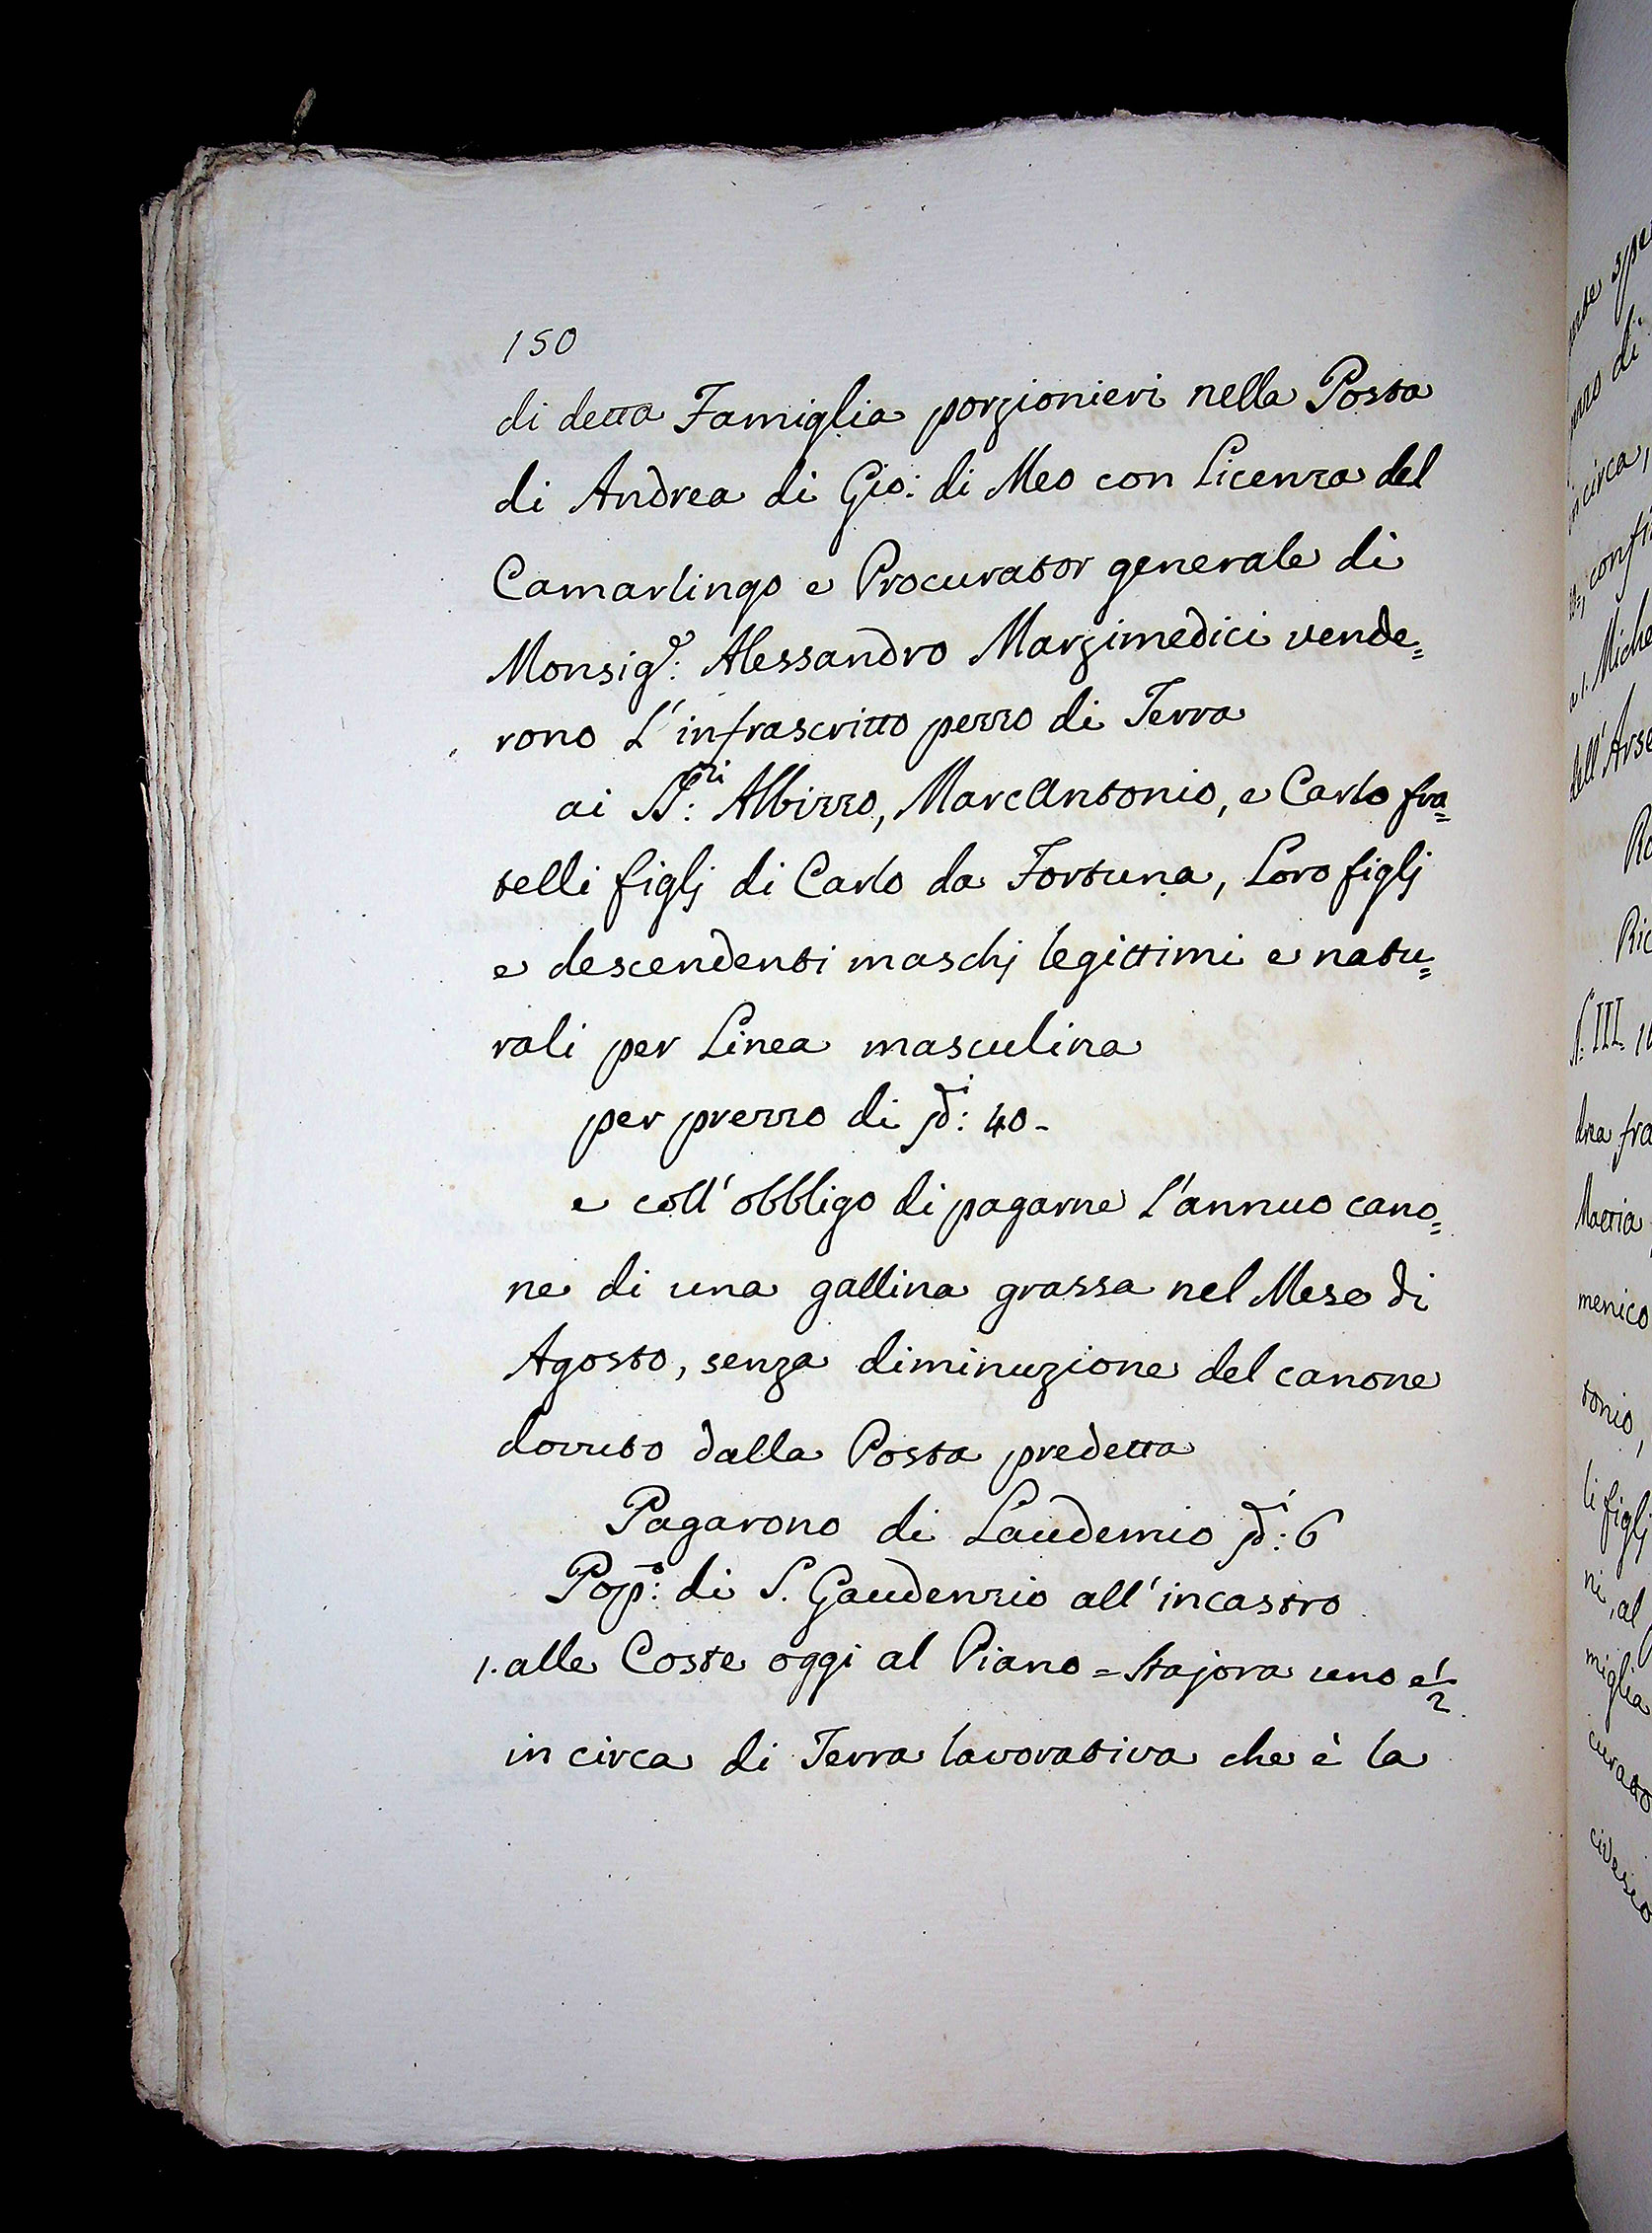 150
di detta Famiglia porzionieri nella Posta
di Andrea di Gio: di Meo con Licenza del
Camarlingo e Procurator generale di
Monsig.r: Alessandro Marzimedici vende=
rono L'infrascritto pezzo di Terra
ai SS:ri Albizzo, MarcAntonio, e Carlo fra=
telli figlj di Carlo da Fortuna, Loro figlj
e descendenti maschj legittimi e natu=
rali per Linea masculina
per prezzo di : 40-
e coll'obbligo di pagarne L'annuo cano=
ne di una gallina grassa nel Mese di
Agosto, senza diminuzione del canone
dovuto dalla Posta predetta
Pagarono di Laudemio : 6
Pop:o di S. Gaudenzio all'incastro
1. alle Coste oggi al Piano = Stajora uno e 1/2
in circa di Terra lavorativa che è la
circa,
Miche
dell'Arse
Ric
S: III.
drea fra
Mattia
menico
tonio,
li figlj
ni, al
miglia
curato